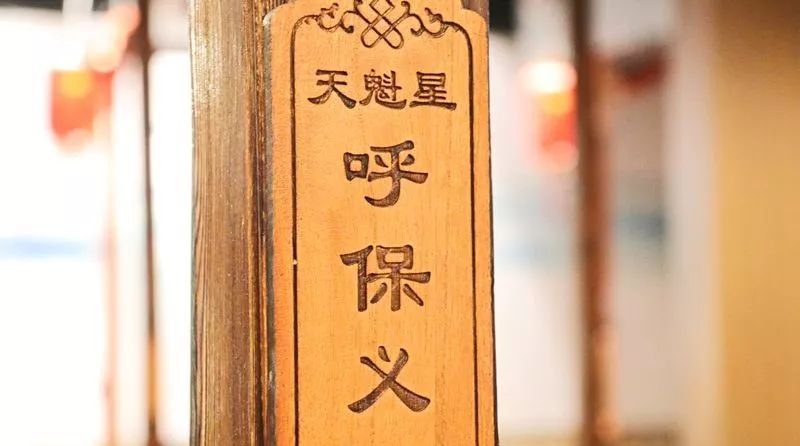 天魁星
呼保义